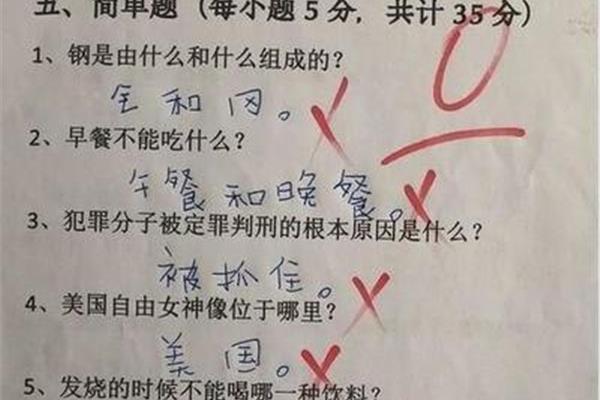 五、简单题（每小题5分，共计35分）
0
1、钢是由什么和什么组成的？
全和冈。
2、早餐不能吃什么？
午餐和晚餐。
3、犯罪分子被定罪判刑的根本原因是什么？
被抓住。
4、美国自由女神像位于哪里？
美国。
5、发烧的时候不能喝哪一种饮料？